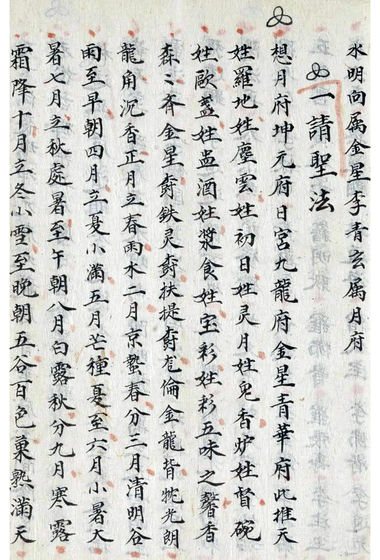 水明向属金星李青玄属月府
一請聖法
想月府坤元府日宫九龍府金星青華府此推天
姓羅地姓塵雲姓初日姓灵月姓皃香炉姓督碗
姓歐盞姓盅酒姓漿食姓宝彩姓彩五味之馨香
森〻斉金星斎鉄灵斎扶提斎倫金龍皆光朗
龍角沉香正月立春雨水二月京蟄春分三月清明谷
雨至早朝四月立夏小满五月芒種夏至六月小暑大
暑七月立秋處暑至午朝八月白露秋分九月寒露
霜降十月立冬小雪至晚朝五谷百色菓熟滿天